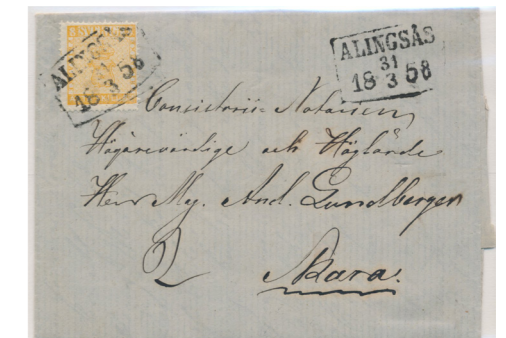 ALINGSÅS
31
18 3 58
ALINGSÅS
31
18 3 58
Consistorii Notarien
Högärevördige och Höglärde
Herr Mg. And. Lundbergen
Skara.